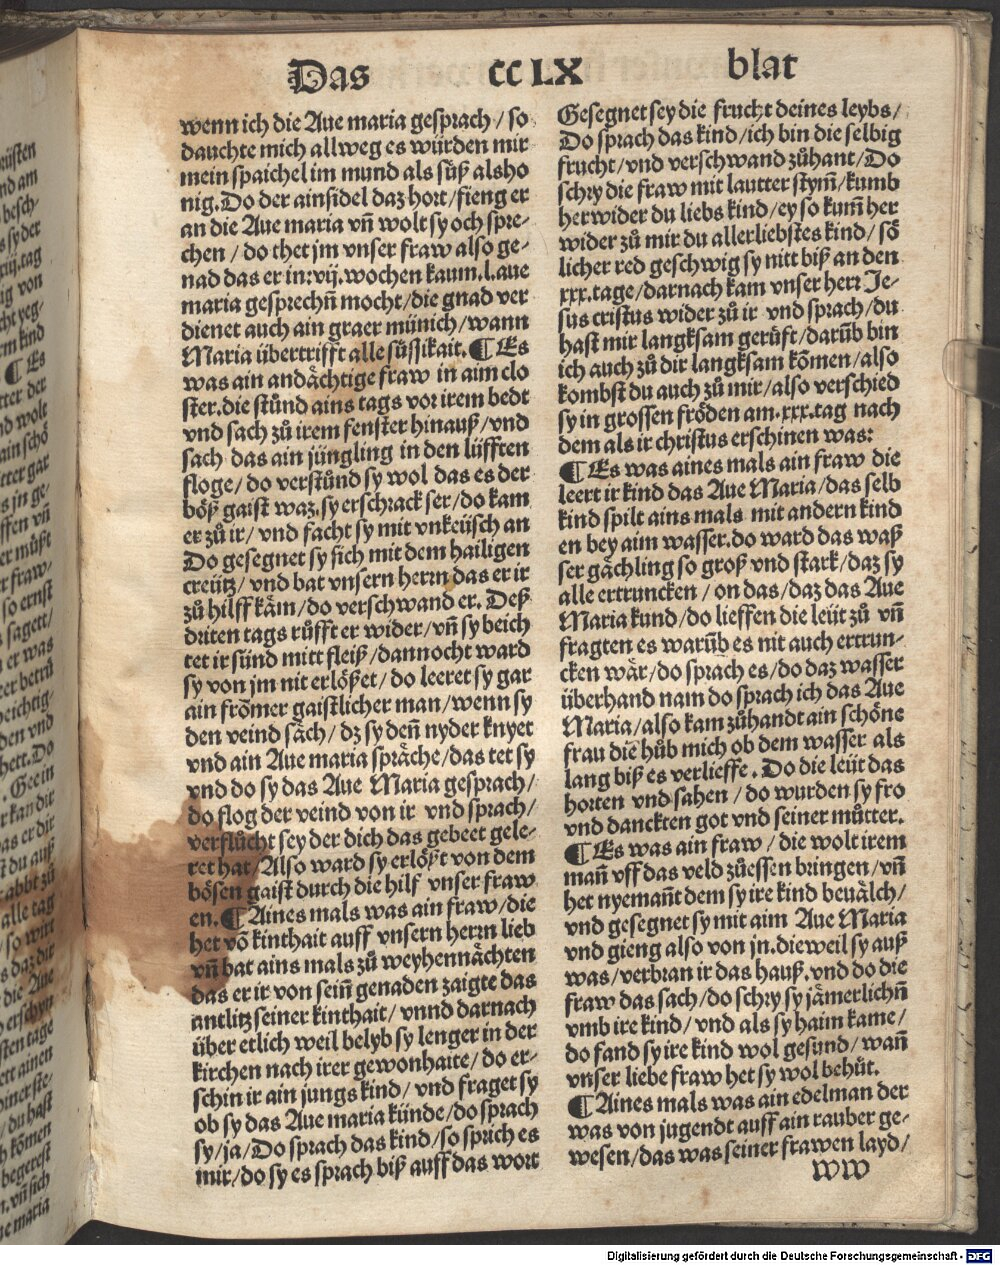 Das ccLX blat
wenn ich die Aue maria gesprach / so
dauchte mich allweg es würden mir
mein spaichel im mund als süß alsho
nig. Do der ainsidel daz hort / fieng er
an die Aue maria vñ wolt sy och spre-
chen / do thet jm vnser fraw also ge-
nad das er in .vij. wochen kaum .l. aue
maria gesprechñ mocht / die gnad ver
dienet auch ain graer münich / wann
Maria übertrifft alle süssikait. ¶ Es
was ain andächtige fraw in aim clo
ster. die stůnd ains tags vor irem bedt
vnd sach zů irem fenster hinauß / vnd
sach das ain jüngling in den lüfften
floge / do verstůnd sy wol das es der
böß gaist waz. sy erschrack ser / do kam
er zů ir / vnd facht sy mit vnkeüsch an
Do gesegnet sy sich mit dem hailigen
creütz / vnd bat vnsern herrn das er ir
zů hilff käm / do verschwand er. Deß
driten tags růfft er wider / vñ sy beich
tet ir sünd mitt fleiß / dannocht ward
sy von jm nit erlößet / do leeret sy gar
ain frõmer gaistlicher man / wenn sy
den veind säch / dz sy deñ nyder knyet
vnd ain Aue maria spräche / das tet sy
vnd do sy das Aue Maria gesprach /
do flog der veind von ir vnd sprach /
verflůcht sey der dich das gebeet gele-
ret hat / Also ward sy erlößt von dem
bösen gaist durch die hilf vnser fraw
en. ¶ Aines mals was ain fraw / die
het võ kinthait auff vnsern herrn lieb
vñ bat ains mals zů weyhennächten
das er ir von seiñ genaden zaigte das
antlitz seiner kinthait / vnnd darnach
über etlich weil belyb sy lenger in der
kirchen nach irer gewonhaite / do er-
schin ir ain jungs kind / vnd fraget sy
ob sy das Aue maria künde / do sprach
sy / ja / Do sprach das kind / so sprich es
mir / do sy es sprach biß auff das wort
Gesegnet sey die frucht deines leybs /
Do sprach das kind / ich bin die selbig
frucht / vnd verschwand zůhant / Do
schry die fraw mit lautter stym̃ / kumb
herwider du liebs kind / ey so kum̃ her
wider zů mir du allerliebstes kind / sõ
licher red geschwig sy nitt biß an den
xxx. tage / darnach kam vnser herr Je-
sus cristus wider zů ir vnd sprach / du
hast mir langksam gerüft / darũb bin
ich auch zů dir langksam kõmen / also
kombst du auch zů mir / also verschied
sy in grossen fröden am .xxx. tag nach
dem als ir christus erschinen was:
¶ Es was aines mals ain fraw die
leert ir kind das Aue Maria / das selb
kind spilt ains mals mit andern kind
en bey aim wasser. do ward das waß
ser gächling so groß vnd stark / daz sy
alle ertruncken / on das / daz das Aue
Maria kund / do lieffen die leüt zů vñ
fragten es warũb es nit auch ertrun-
cken wär / do sprach es / do daz wasser
überhand nam do sprach ich das Aue
Maria / also kam zůhandt ain schöne
frau die hůb mich ob dem wasser als
lang biß es verlieffe. Do die leüt das
horten vnd sahen / do wurden sy fro
vnd danckten got vnd seiner můtter.
¶ Es was ain fraw / die wolt irem
mañ vff das veld zůessen bringen / vñ
het nyemañt dem sy ire kind beuälch /
vnd gesegnet sy mit aim Aue Maria
vnd gieng also von jn. dieweil sy auß
was / verbran ir das hauß. vnd do die
fraw das sach / do schry sy jämerlichñ
vmb ire kind / vnd als sy haim kame /
do fand sy ire kind wol gesund / wañ
vnser liebe fraw het sy wol behüt.
¶ Aines mals was ain edelman der
was von jugendt auff ain rauber ge-
wesen / das was seiner frawen layd /
ww
Digitalisierung gefördert durch die Deutsche Forschungsgemeinschaft - DFG